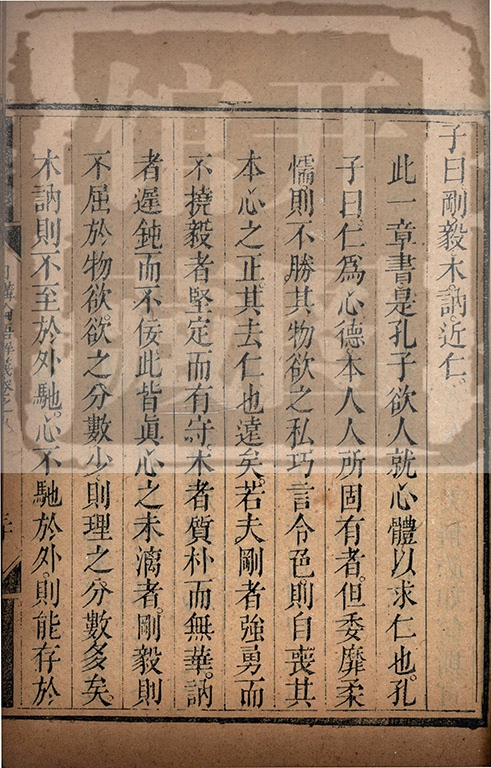 子曰剛毅木訥近仁
此一章書是孔子欲人就心體以求仁也孔
子曰仁爲心德本人人所固有者但委靡柔
懦則不勝其物欲之私巧言令色則自喪其
本心之正其去仁也遠矣若夫剛者強勇而
不撓毅者堅定而有守木者質朴而無華訥
者遲鈍而不佞此皆眞心之未漓者剛毅則
不屈於物欲欲之分數少則理之分數多矣
木訥則不至於外馳心不馳於外則能存於